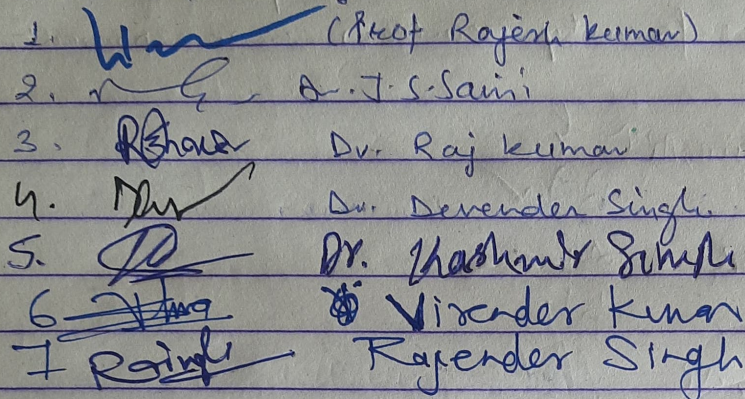 1. (Prof Rajesh Kumar)
2. Dr. J. S. Saini
3. Dr. Raj Kumar
4. Dr. Devender Singh.
5. Dr. Kashmir Singh
6 Virender Kumar
7 Rsingh Rajender Singh